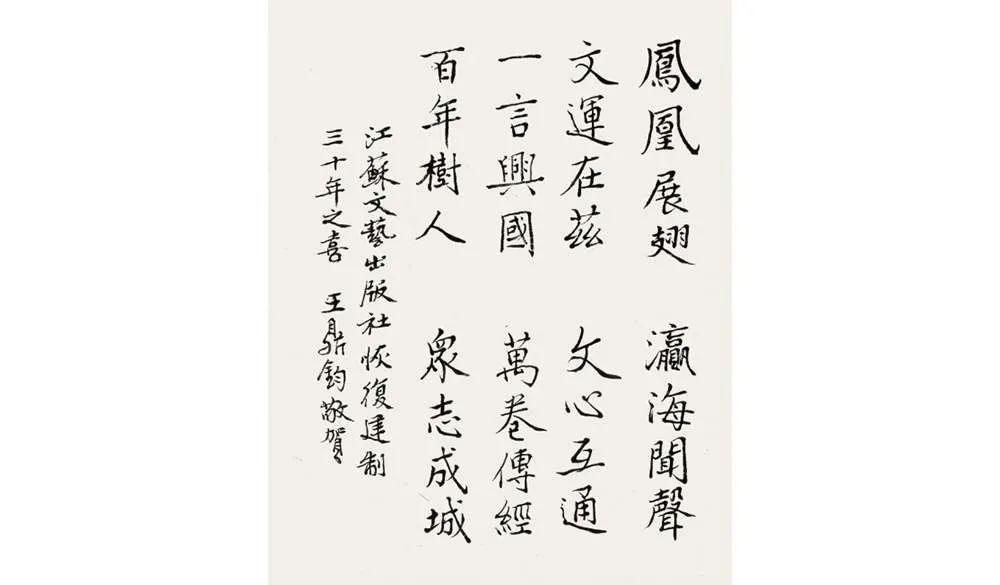 鳳凰展翅 瀛海聞聲
文運在茲 文心互通
一言興國 萬卷傳經
百年樹人 眾志成城
江蘇文藝出版社恢復建制
三十年之喜 王鼎鈞敬賀